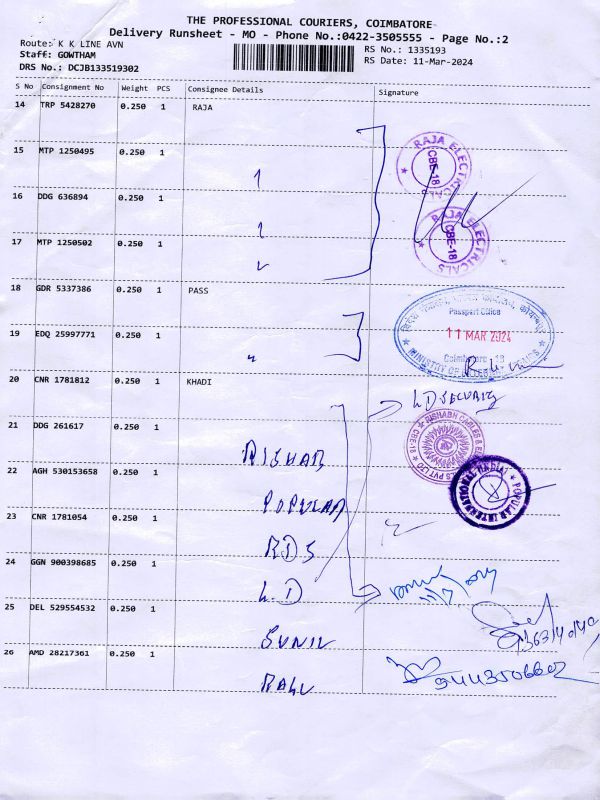 THE PROFESSIONAL COURIERS, COIMBATORE
Delivery Runsheet - MO - Phone No.:0422-3505555 - Page No.:2
Route: K K LINE AVN
Staff: GOWTHAM
DRS No.: DCJB133519302
RS No.: 1335193
RS Date: 11-Mar-2024
S No Consignment No Weight PCS Consignee Details Signature
14 TRP 5428270 0.250 1 RAJA
15 MTP 1250495 0.250 1
RAJA ELECTRICALS CBE-18
16 DDG 636894 0.250 1
17 MTP 1250502 0.250 1
RAJA ELECTRICALS CBE-18
18 GDR 5337386 0.250 1 PASS
Passport Office
19 EDQ 25997771 0.250 1 "
11 MAR 2024
Coimbatore 18
20 CNR 1781812 0.250 1 KHADI
LD SECURITY
21 DDG 261617 0.250 1
RISHAB
RISHABH CABLES & CBE-18
22 AGH 530153658 0.250 1
POPULAR
POPULAR INTERNATIONAL
23 CNR 1781054 0.250 1
RDS
24 GGN 900398685 0.250 1
L.D
25 DEL 529554532 0.250 1
SUNIL
26 AMD 28217361 0.250 1
RAGU